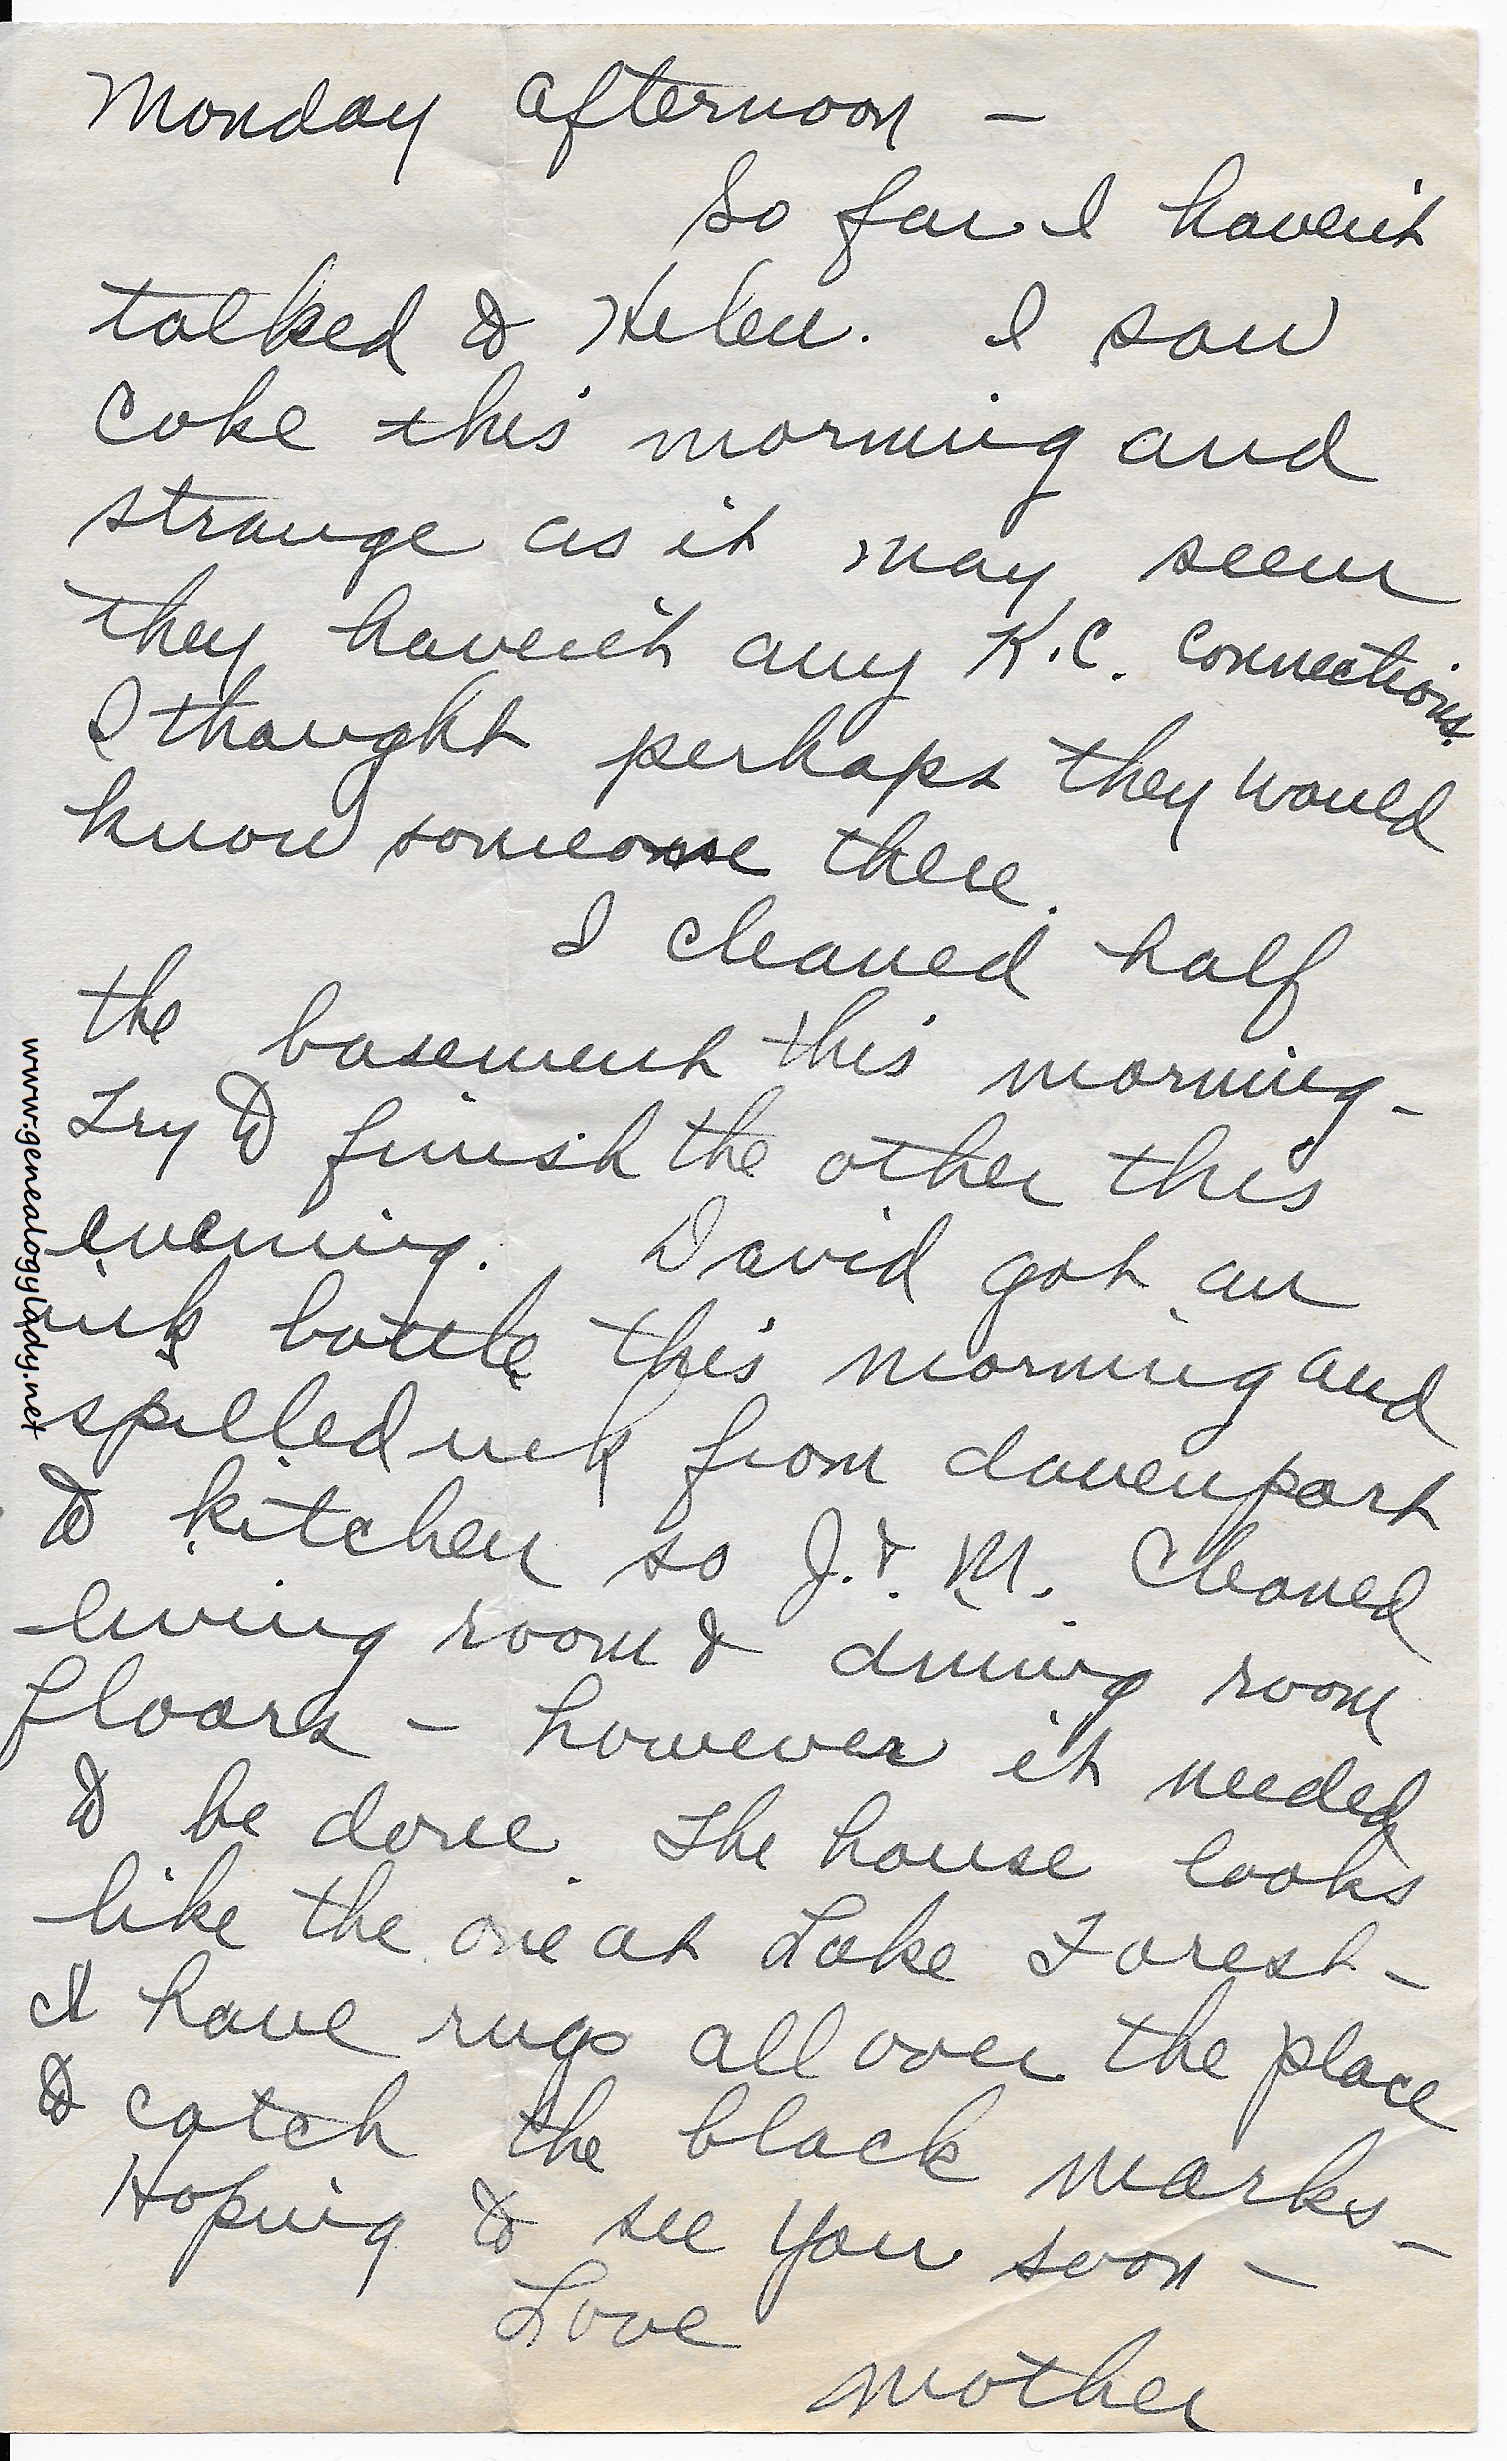 Monday afternoon –
So far I haven't
talked to Helen. I saw
Coke this morning and
strange as it may seem
they haven't any K.C. connections.
I thought perhaps they would
know someone there.
I cleaned half
the basement this morning –
Try to finish the other this
evening. David got an
ink bottle this morning and
spilled ink from davenport
to kitchen so J. & M. cleaned
living room & dining room
floors – however it needed
to be done. The house looks
like the one at Lake Forest –
I have rugs all over the place
to catch the black marks –
Hoping to see you soon –
Love
Mother
www.genealogylady.net